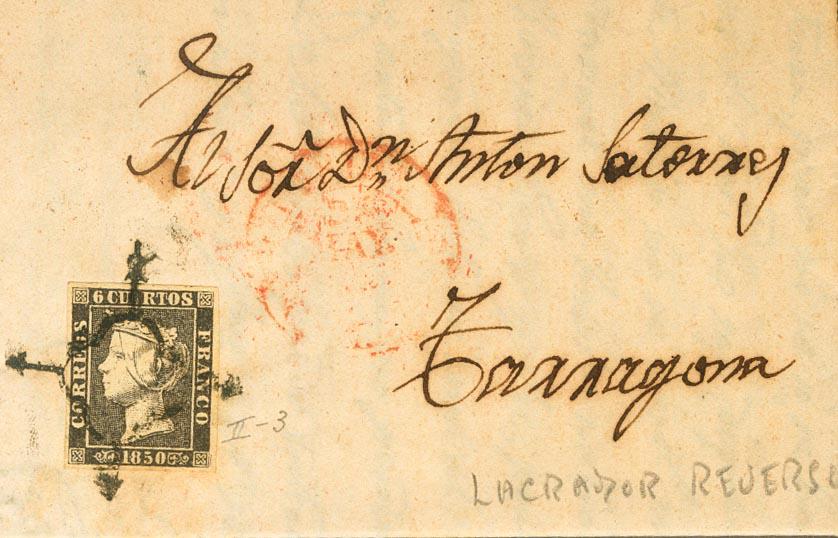 Al Sor Dn Anton Saterres
Tarragona
6 CUARTOS
CORREOS
FRANCO
1850
II-3
LACRADOR REVERSO